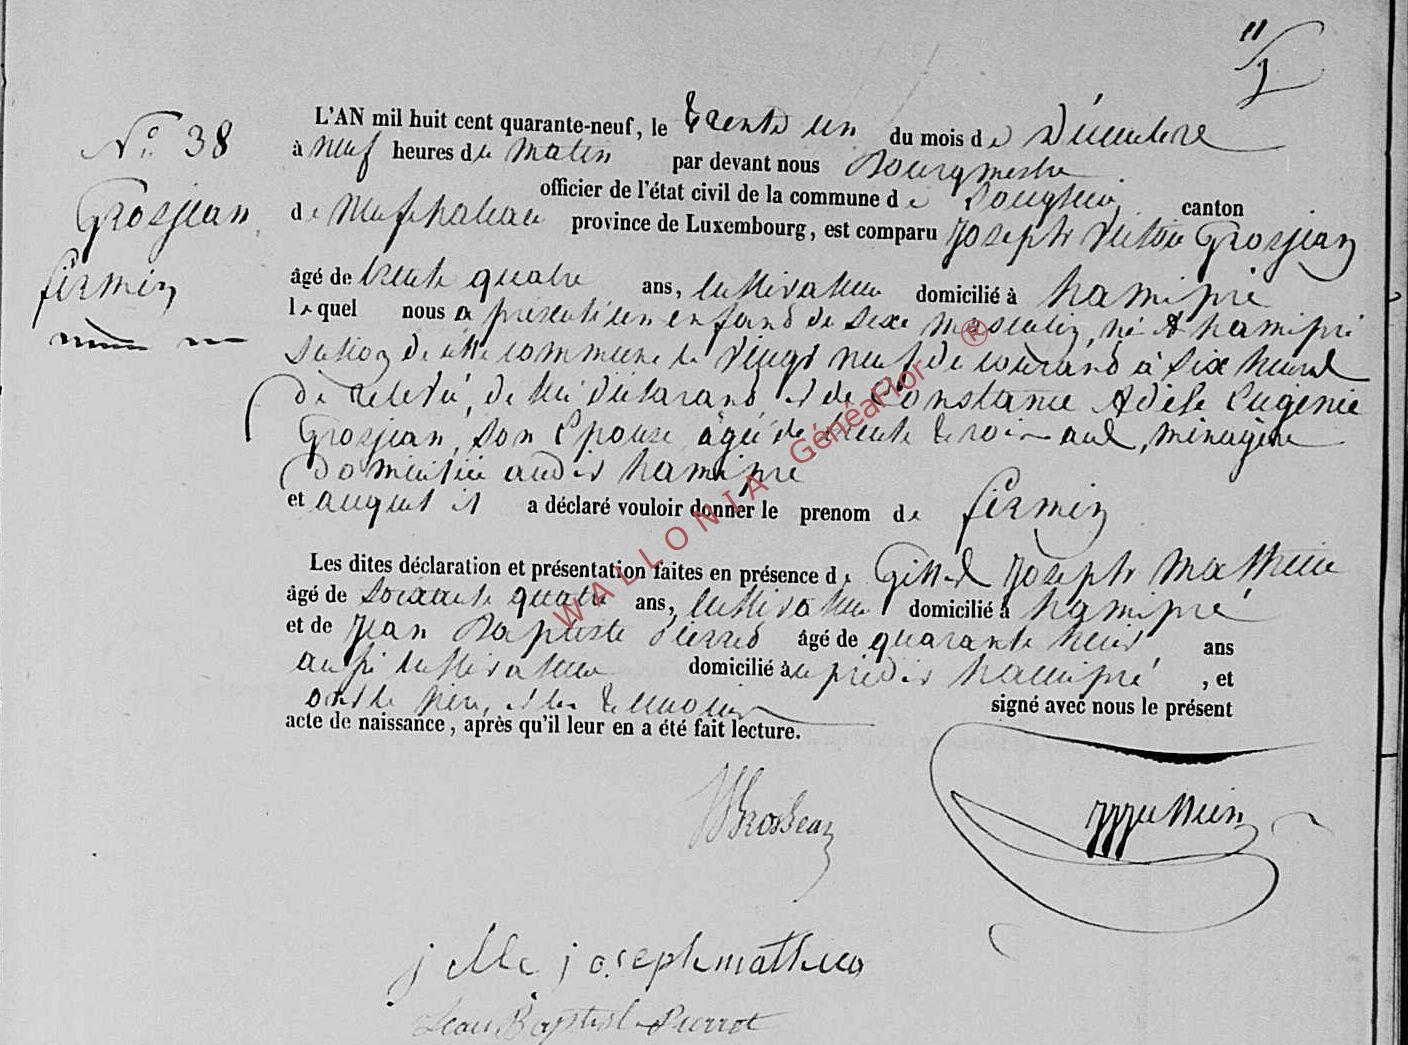 N° 38
Grosjean
firmin
L'AN mil huit cent quarante-neuf, le trente un du mois de décembre
à neuf heures du matin par devant nous Bourgmestre
officier de l'état civil de la commune de Longlier canton
de Neufchateau province de Luxembourg, est comparu Joseph Victor Grosjean
âgé de trente quatre ans, cultivateur domicilié à hamipré
lequel nous a présenté un enfand de sexe masculin, né à hamipré
section de cette commune le vingt neuf de courand à six heures
de relevé, de lui déclarand et de Constance Adèle Eugénie
Grosjean, son épouse, âgée de trente trois ans, ménagère
domiciliée audit hamipré
et auquel il a déclaré vouloir donner le prenom de firmin
Les dites déclaration et présentation faites en présence de Joseph Mathieu
âgé de soixante quatre ans, cultivateur domicilié à hamipré
et de Jean Baptiste Pierrot âgé de quarante ans
aussi cultivateur domicilié à hamipré, et
ont le père et les temoins signé avec nous le présent
acte de naissance, après qu'il leur en a été fait lecture.
Grosjean
joseph mathieu
Jean Baptiste Pierrot
WALLONIA GénéaFlor ®